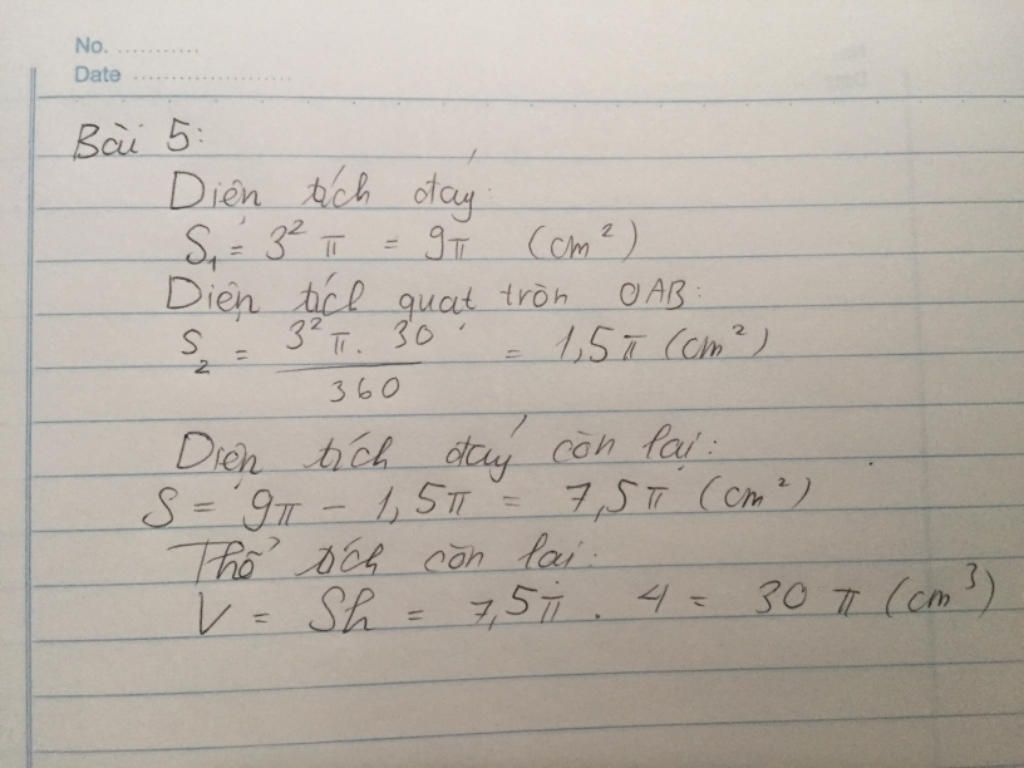 No. ...........
Date ......................
Bài 5:
Diện tích đáy:
S₁ = 3² π = 9π (cm²)
Diện tích quạt tròn OAB:
S₂ = 3² π. 30 / 360 = 1,5π (cm²)
Diện tích đáy còn lại:
S = 9π - 1,5π = 7,5π (cm²)
Thể tích còn lại:
V = Sh = 7,5π . 4 = 30 π (cm³)